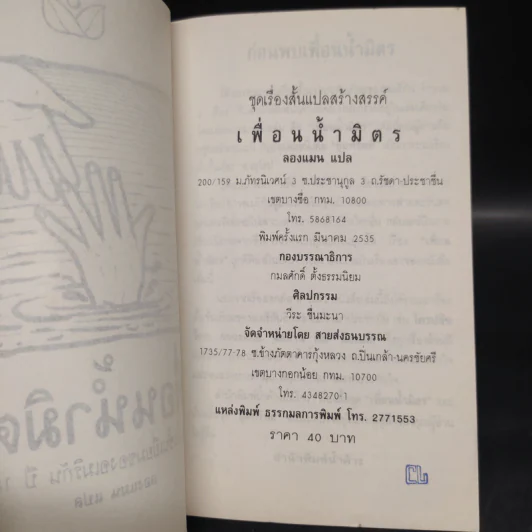 ชุดเรื่องสั้นแปลสร้างสรรค์
เพื่อนน้ำมิตร
ลองแมน แปล
200/159 ม.ภัทรนิเวศน์ 3 ซ.ประชานุกูล 3 ถ.รัชดา-ประชาชื่น
เขตบางซื่อ กทม. 10800
โทร. 5868164
พิมพ์ครั้งแรก มีนาคม 2535
กองบรรณาธิการ
กมลศักดิ์ ตั้งธรรมนิยม
ศิลปกรรม
วีระ ชื่นมะนา
จัดจำหน่ายโดย สายส่งธนบรรณ
1735/77-78 ซ.ข้างภัตตาคารกุ้งหลวง ถ.ปิ่นเกล้า-นครชัยศรี
เขตบางกอกน้อย กทม. 10700
โทร. 4348270-1
แหล่งพิมพ์ ธรรกมลการพิมพ์ โทร. 2771553
ราคา 40 บาท